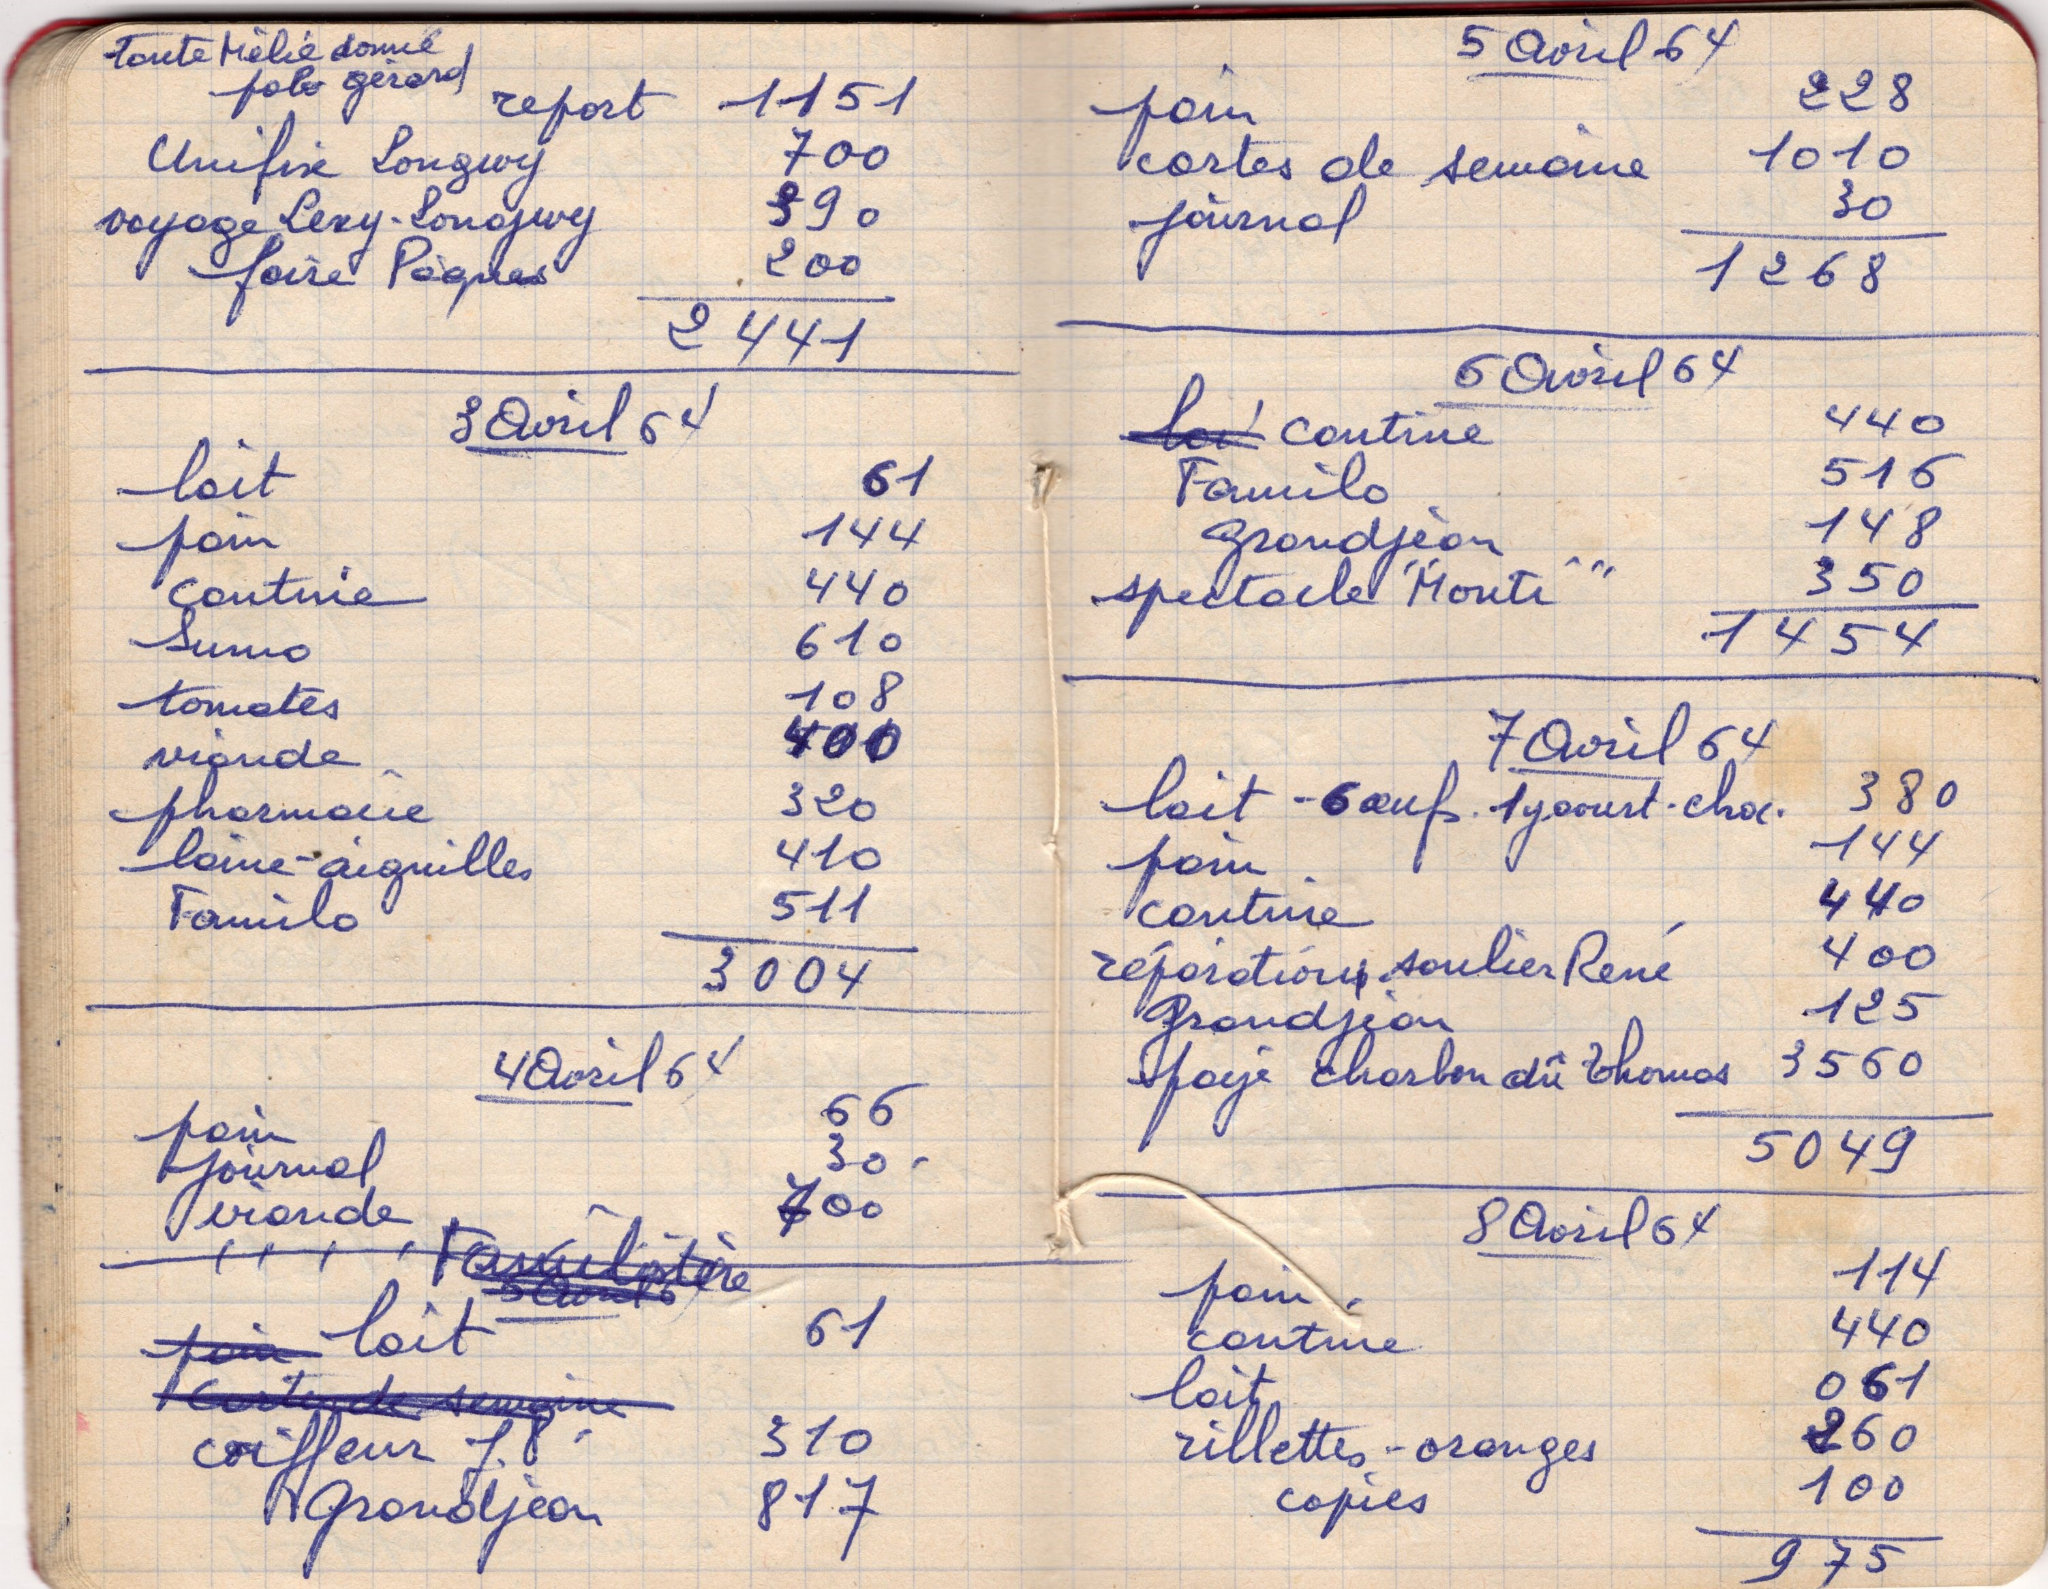 tante Mélie donné
polo gérard
report 1151
Unifix Longwy 700
voyage Lexy-Longwy 390
foire Pâques 200
2441
3 Avril 64
lait 61
pain 144
cantine 440
Suma 610
tomates 108
viande 400
pharmacie 320
laine-aiguilles 410
Familo 511
3004
4 Avril 64
pain 66
journal 30
viande 700
Familistère
5 Avril 6
pain lait 61
cartes de semaine
coiffeur J.P. 310
Grandjean 817
5 Avril 64
pain 228
cartes de semaine 1010
journal 30
1268
6 Avril 64
lai cantine 440
Familo 516
Grandjean 148
spectacle "Monti" 350
1454
7 Avril 64
lait - 6 œufs. 1 yaourt-choc. 380
pain 144
cantine 440
réparations soulier René 400
Grandjean 125
payé charbon dû Thomas 3560
5049
8 Avril 64
pain. 114
cantine 440
lait 061
rillettes-oranges 260
copies 100
975